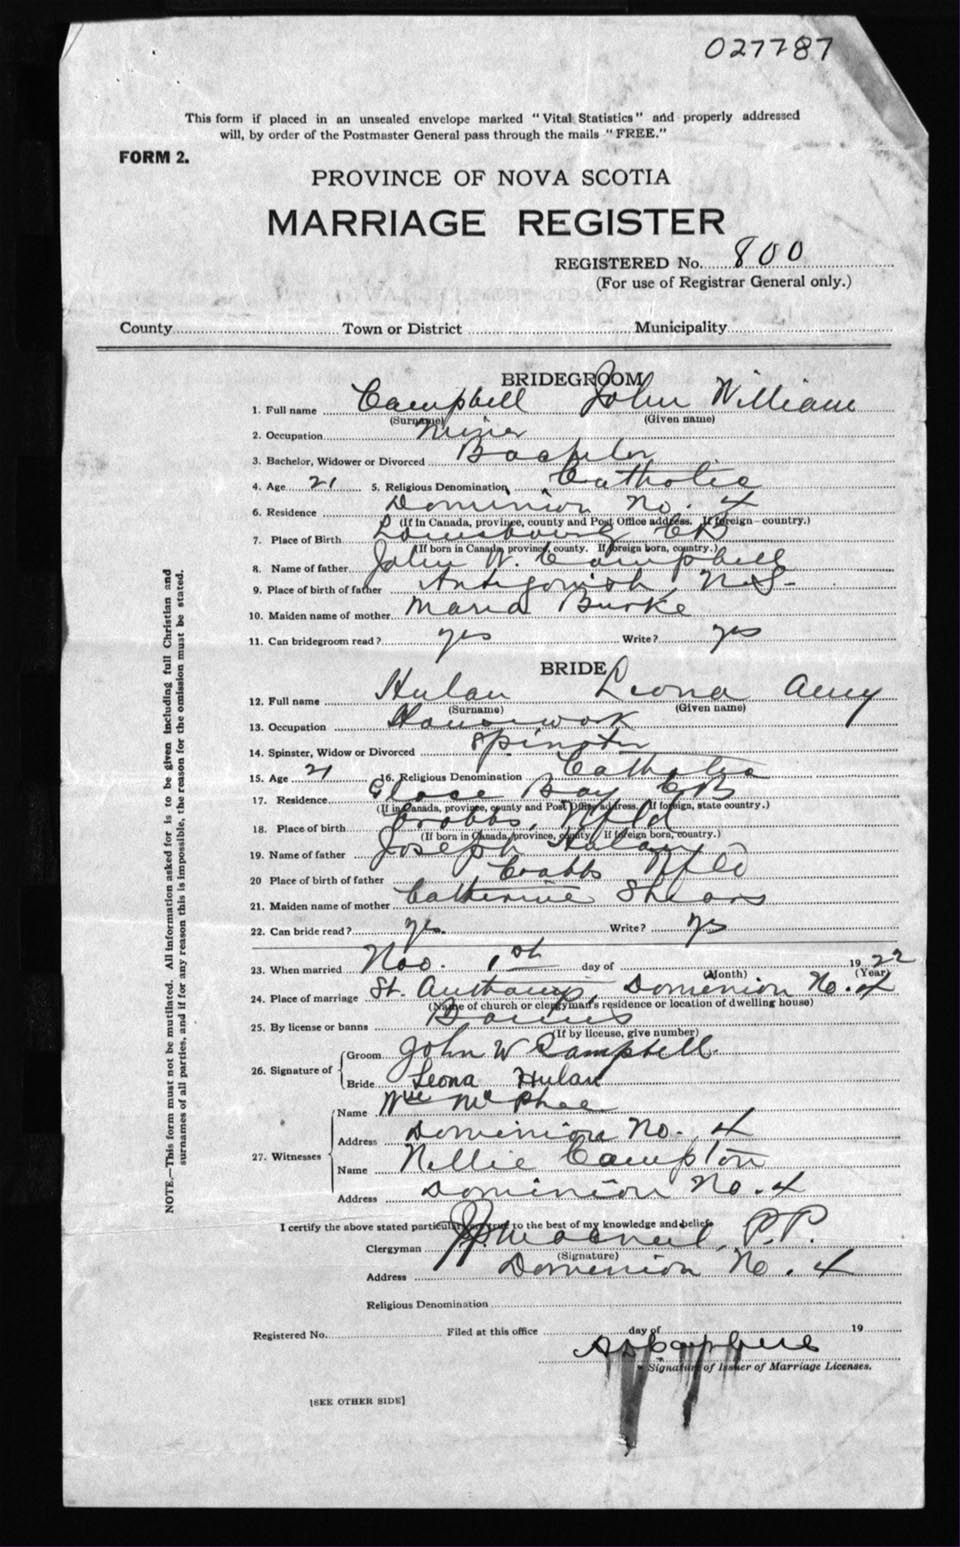 027787
This form if placed in an unsealed envelope marked "Vital Statistics" and properly addressed
will, by order of the Postmaster General pass through the mails "FREE."
FORM 2.
PROVINCE OF NOVA SCOTIA
MARRIAGE REGISTER
REGISTERED No. 800
(For use of Registrar General only.)
County Town or District Municipality
BRIDEGROOM
1. Full name Campbell John William
(Surname) (Given name)
2. Occupation Miner
3. Bachelor, Widower or Divorced Bachelor
4. Age 21 5. Religious Denomination Catholic
6. Residence Dominion No. 4
(If in Canada, province, county and Post Office address. If foreign country.)
7. Place of Birth Louisbourg CB
(If born in Canada, province, county. If foreign born, country.)
8. Name of father John W. Campbell
9. Place of birth of father Antigonish N.S.
10. Maiden name of mother Maria Burke
11. Can bridegroom read? yes Write? yes
BRIDE
12. Full name Hulan Leona Amy
(Surname) (Given name)
13. Occupation Housework
14. Spinster, Widow or Divorced Spinster
15. Age 21 16. Religious Denomination Catholic
17. Residence Glace Bay CB
(If in Canada, province, county and Post Office address. If foreign, state country.)
18. Place of birth Crabbs, Nfld
(If born in Canada, province, county. If foreign born, country.)
19. Name of father Joseph Hulan
20 Place of birth of father Crabbs Nfld
21. Maiden name of mother Catherine Shears
22. Can bride read? yes. Write? yes
23. When married Nov. 1st day of 1922
(Month) (Year)
24. Place of marriage St. Anthony's, Dominion No. 4
(Name of church or clergyman's residence or location of dwelling house)
25. By license or banns Banns
(If by license, give number)
26. Signature of Groom John W Campbell
Bride Leona Hulan
27. Witnesses Name Wm McPhee
Address Dominion No. 4
Name Nellie Campton
Address Dominion No. 4
I certify the above stated particulars are true to the best of my knowledge and belief.
Clergyman MacNeil, P.P.
(Signature)
Address Dominion No. 4
Religious Denomination
Registered No. Filed at this office day of 19
Signature of Issuer of Marriage Licenses.
[SEE OTHER SIDE]
NOTE.—This form must not be mutilated. All information asked for is to be given including full Christian and
surnames of all parties, and if for any reason this is impossible, the reason for the omission must be stated.